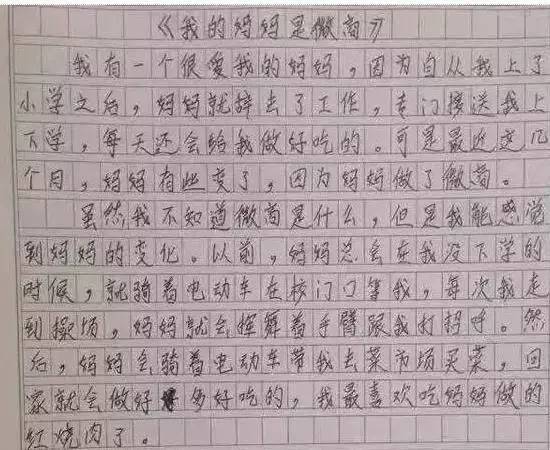 《我的妈妈是微商》
我有一个很爱我的妈妈，因为自从我上了
小学之后，妈妈就辞去了工作，专门接送我上
下学，每天还会给我做好吃的。可是最近这几
个月，妈妈有些变了，因为妈妈做了微商。
虽然我不知道微商是什么，但是我能感觉
到妈妈的变化。以前，妈妈总会在我没下学的
时候，就骑着电动车在校门口等我，每次我走
到操场，妈妈就会挥舞着手臂跟我打招呼。然
后，妈妈会骑着电动车带我去菜市场买菜，回
家就会做好多好吃的，我最喜欢吃妈妈做的
红烧肉了。